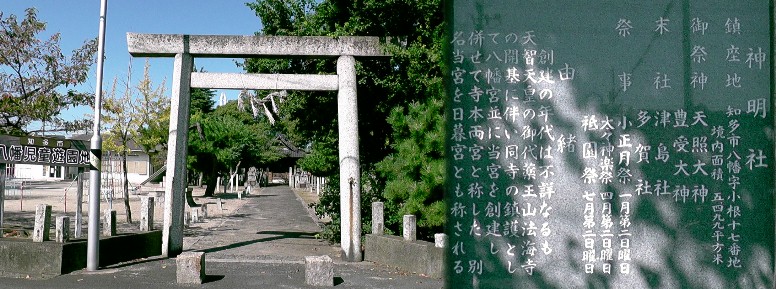 知多市
八幡児童遊園地
神明社
鎮座地 知多市八幡字小根十七番地
境内面積 五四九九平方米
御祭神 天照大神
豊受大神
末社 津島社
多賀社
祭事 小正月祭 一月第二日曜日
太々神楽祭 四月第二日曜日
祗園祭 七月第二日曜日
由緒
創建の年代は不詳なるも
天智天皇の御代薬王山法海寺
の開基に伴い同寺の鎮護とし
て八幡宮並に当宮を創建し
併せて寺本両宮と称した 別
名当宮を日暮宮とも称される